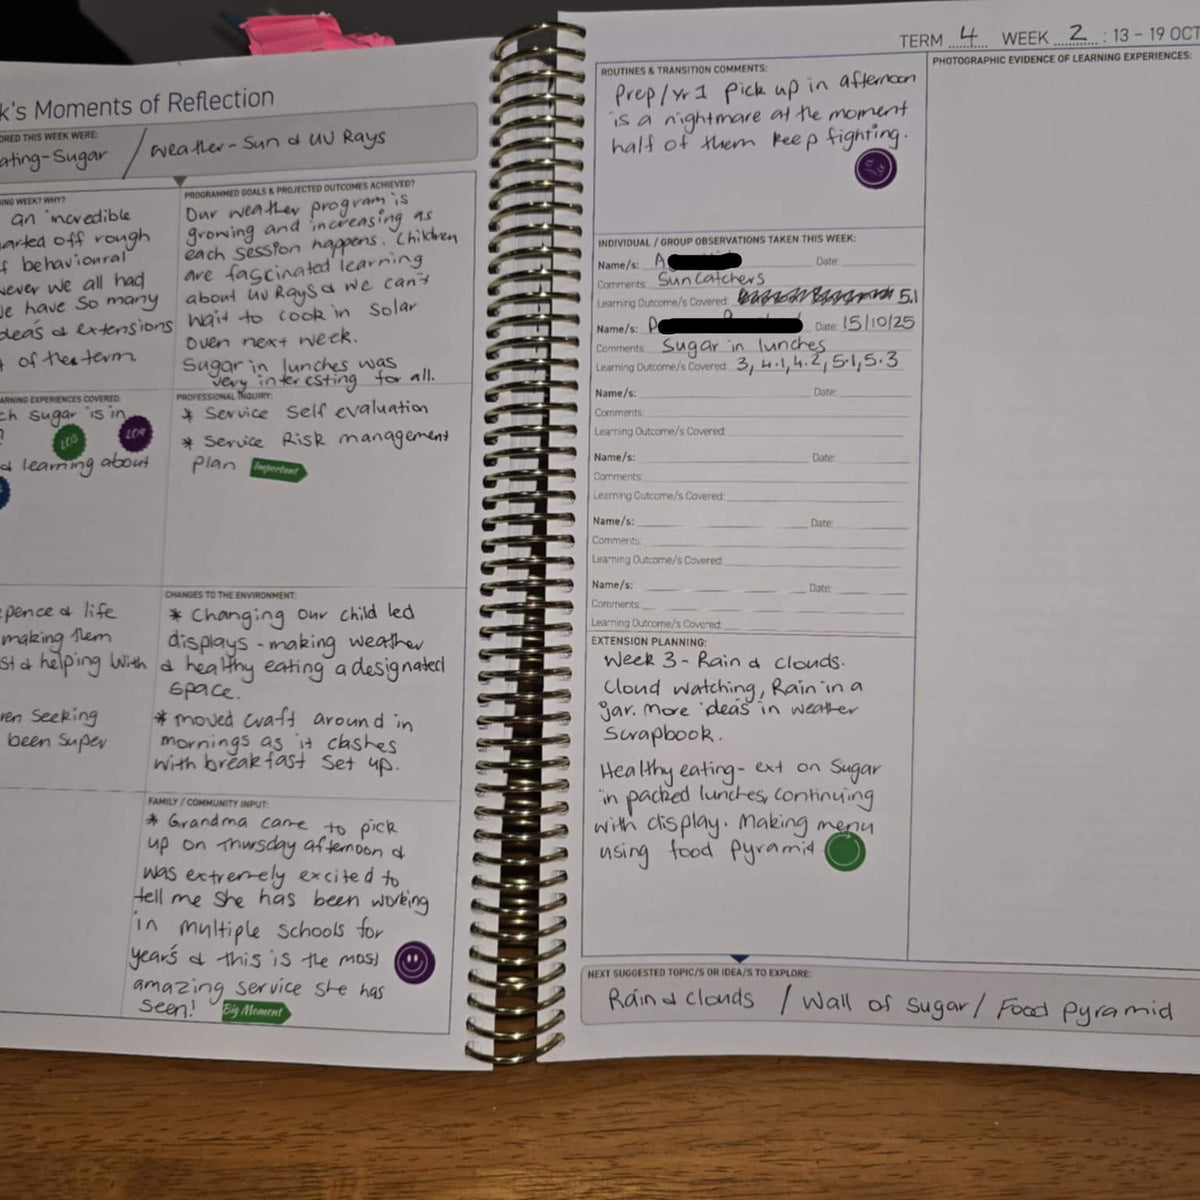 k's Moments of Reflection
ORED THIS WEEK WERE:
ating-Sugar / Weather-Sun & UV Rays
ING WEEK? WHY?
an incredible
arted off rough
f behavioural
ever we all had
e have so many
deas & extensions
of the term.
PROGRAMMED GOALS & PROJECTED OUTCOMES ACHIEVED?
Our weather program is
growing and increasing as
each session happens. Children
are fascinated learning
about UV Rays & we can't
wait to cook in solar
oven next week.
Sugar in lunches was
very interesting for all.
ARNING EXPERIENCES COVERED:
ch sugar is in
?
& learning about
PROFESSIONAL INQUIRY:
* Service Self evaluation
* Service Risk management
plan Important
pence & life
making them
st & helping with
ren seeking
been super
CHANGES TO THE ENVIRONMENT:
* Changing our child led
displays - making weather
& healthy eating a designated
space.
* moved craft around in
mornings as it clashes
with breakfast set up.
FAMILY / COMMUNITY INPUT:
* Grandma came to pick
up on Thursday afternoon &
was extremely excited to
tell me she has been working
in multiple schools for
years & this is the most
amazing service she has
seen! Big Moment
TERM 4 WEEK 2 : 13 - 19 OCT
ROUTINES & TRANSITION COMMENTS:
Prep/Yr1 pick up in afternoon
is a nightmare at the moment
half of them keep fighting.
PHOTOGRAPHIC EVIDENCE OF LEARNING EXPERIENCES:
INDIVIDUAL / GROUP OBSERVATIONS TAKEN THIS WEEK:
Name/s: A Date:
Comments: Suncatchers
Learning Outcome/s Covered: 5.1
Name/s: Date: 15/10/25
Comments: Sugar in lunches
Learning Outcome/s Covered: 3, 4.1, 4.2, 5.1, 5.3
Name/s: Date:
Comments:
Learning Outcome/s Covered:
Name/s: Date:
Comments:
Learning Outcome/s Covered:
Name/s: Date:
Comments:
Learning Outcome/s Covered:
Name/s: Date:
Comments:
Learning Outcome/s Covered:
EXTENSION PLANNING:
Week 3 - Rain & clouds.
Cloud watching, Rain in a
jar. More ideas in weather
Scrapbook.
Healthy eating- ext on Sugar
in packed lunches, continuing
with display. Making menu
using food pyramid
NEXT SUGGESTED TOPIC/S OR IDEA/S TO EXPLORE:
Rain & clouds / Wall of sugar / Food pyramid